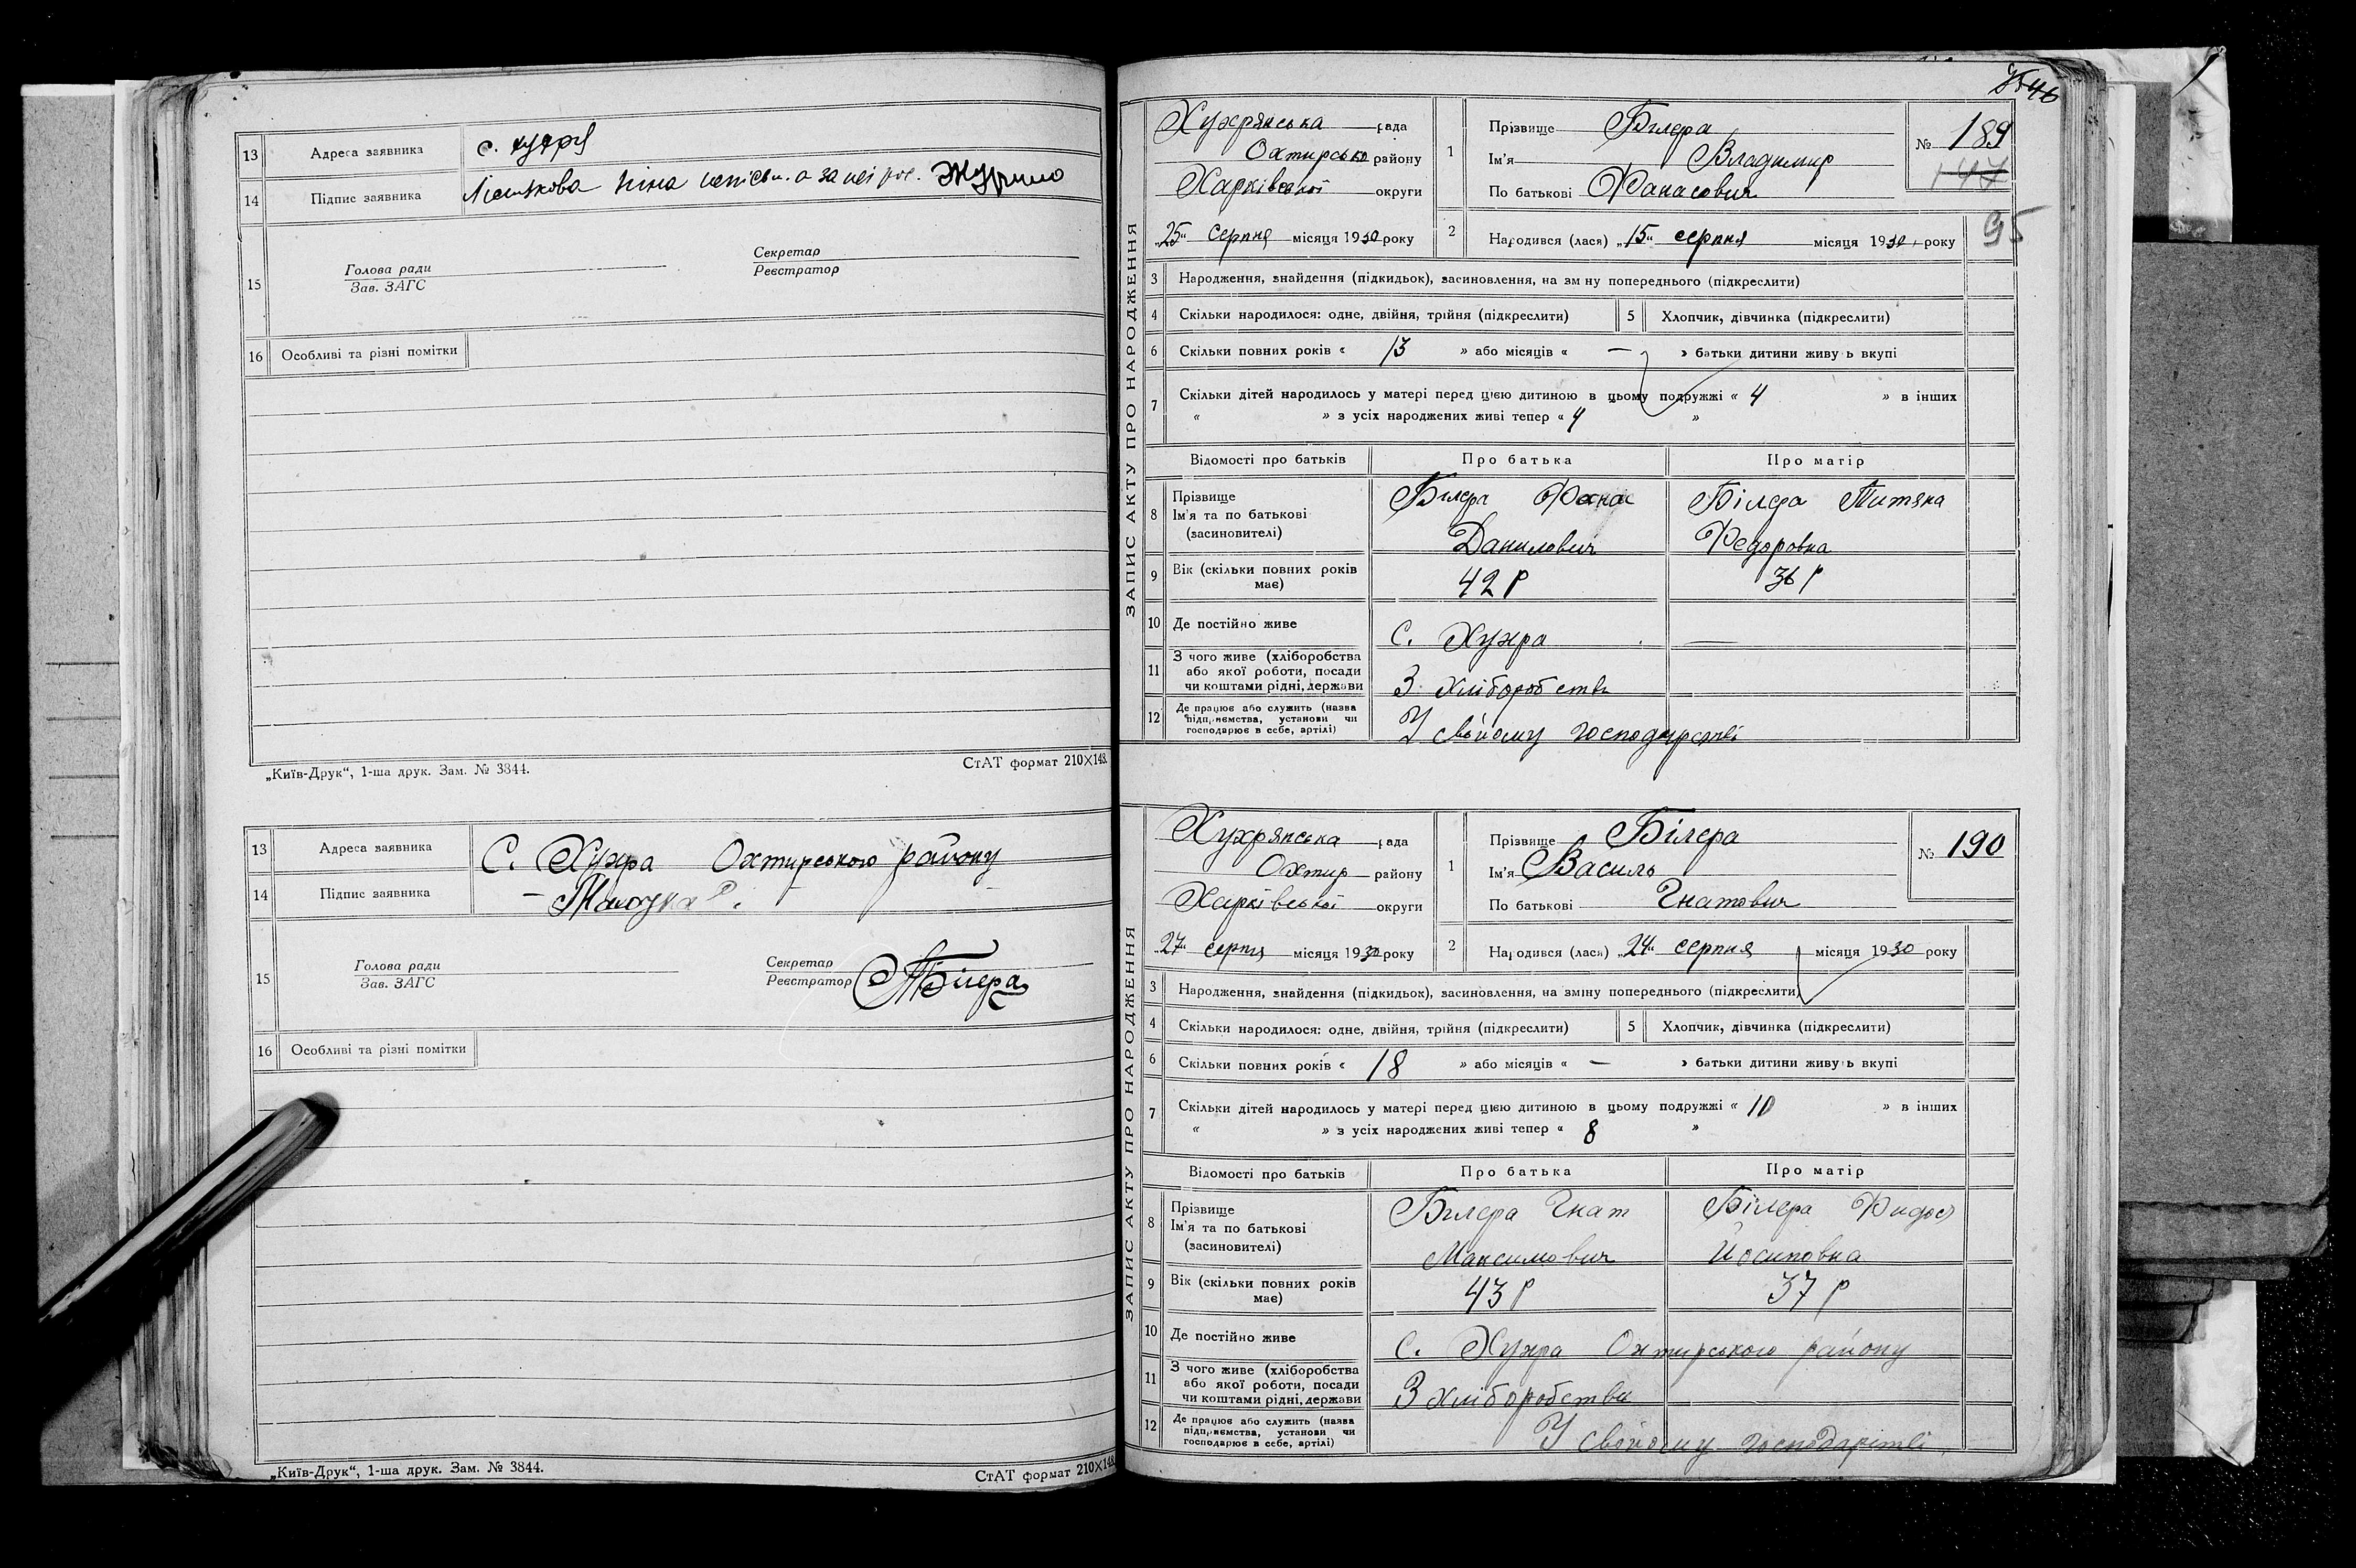 13 Адреса заявника с. Хухря
14 Підпис заявника Ніна неписьм. а за неї рос.
15 Голова ради
Зав. ЗАГС
Секретар
Реєстратор
16 Особливі та різні помітки
„Київ-Друк“, 1-ша друк. Зам. № 3844. СтАТ формат 210×148.
13 Адреса заявника С. Хухра Охтирського району
14 Підпис заявника
15 Голова ради
Зав. ЗАГС
Секретар
Реєстратор Білера
16 Особливі та різні помітки
„Київ-Друк“, 1-ша друк. Зам. № 3844. СтАТ формат 210×148.
ЗАПИС АКТУ ПРО НАРОДЖЕННЯ
Хухрянська рада
Охтирсько району
Харківської округи
„25“ серпня місяця 1930 року
1 Прізвище Білера
Ім'я Владимир
По батькові Фанасович
№ 189
147
95
2 Народився (лася) „15“ серпня місяця 1930 року
3 Народження, знайдення (підкидьок), засиновлення, на зм ну попереднього (підкреслити)
4 Скільки народилося: одне, двійня, трійня (підкреслити) 5 Хлопчик, дівчинка (підкреслити)
6 Скільки повних років « 13 » або місяців « — » батьки дитини живу ь вкупі
7 Скільки дітей народилось у матері перед цією дитиною в цьому подружжі « 4 » в інших
« » з усіх народжених живі тепер « 4 »
Відомості про батьків Про батька Про матір
8 Прізвище
Ім'я та по батькові
(засиновителі)
Білера Фанас
Данилович
Білера Титяна
Федоровна
9 Вік (скільки повних років має) 42 р 36 р
10 Де постійно живе С. Хухра —
11 З чого живе (хліборобства
або якої роботи, посади
чи коштами рідні, держави
З хліборобства
12 Де працює або служить (назва
підприємства, установи чи
господарює в себе, артілі)
У свойому господарстві
ЗАПИС АКТУ ПРО НАРОДЖЕННЯ
Хухрянська рада
Охтир району
Харківської округи
„27“ серпня місяця 1930 року
1 Прізвище Білера
Ім'я Василь
По батькові Гнатович
№ 190
2 Народився (лася) „24“ серпня місяця 1930 року
3 Народження, знайдення (підкидьок), засиновлення, на зміну попереднього (підкреслити)
4 Скільки народилося: одне, двійня, трійня (підкреслити) 5 Хлопчик, дівчинка (підкреслити)
6 Скільки повних років « 18 » або місяців « — » батьки дитини живу ь вкупі
7 Скільки дітей народилось у матері перед цією дитиною в цьому подружжі « 10 » в інших
« » з усіх народжених живі тепер « 8 »
Відомості про батьків Про батька Про матір
8 Прізвище
Ім'я та по батькові
(засиновителі)
Білера Гнат
Максимович
Білера
Йосиповна
9 Вік (скільки повних років має) 43 р 37 р
10 Де постійно живе С. Хухра Охтирського району
11 З чого живе (хліборобства
або якої роботи, посади
чи коштами рідні, держави
З хліборобства
12 Де працює або служить (назва
підприємства, установи чи
господарює в себе, артілі)
У свойому господарстві